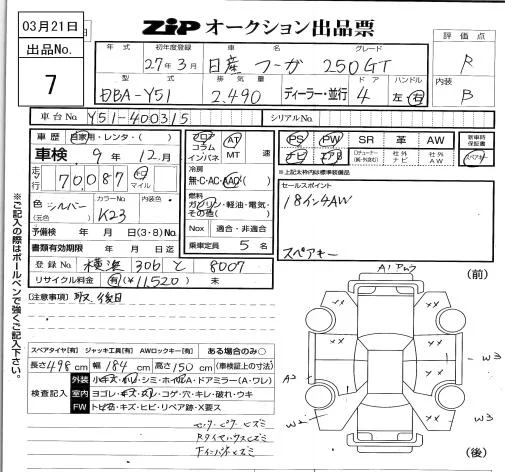 03月21日
出品No.
7
ZiP オークション出品票
評価点
R
内装
B
年式 初年度登録 車名 グレード
27年3月 日産 フーガ 250GT
型式 排気量 ドア ハンドル
DBA-Y51 2.490 ディーラー・並行 4 左・右
車台No. Y51-400315 シリアルNo.
車歴 自家用・レンタ・( )
車検 9年 12月
走行 70,087 km マイル
色 (元色) シルバー カラーNo. K23 内装色
予備検 年 月 日(3・8)No.
書類有効期限 年 月 日迄
登録No. 横浜 306 と 8007
リサイクル料金 有(¥11,520) 未
フロア コラム インパネ AT MT 速
冷房 無・C・AC・AAC
燃料 ガソリン・軽油・電気・その他( )
Nox 適合・非適合
乗車定員 5 名
PS PW SR 革 AW
ナビ エアB 社外ナビ 社外AW
新車時保証書
スペアキー
※上記太枠内は標準装備品
セールスポイント
18インチAW
スペアキー
[注意事項] 取 後日
※ご記入の際はボールペンで強くご記入下さい。
スペアタイヤ[有] ジャッキ工具[有] AWロックキー[有] ある場合のみ○
長さ498cm 幅184cm 高さ150cm (車検証上の寸法)
検査記入
外装 小キズ・凹・シミ・ホイルA・ドアミラー(A・ワレ)
室内 ヨゴレ・キズ・スレ・コゲ・穴・キレ・破れ・ウキ
FW トビ石・キズ・ヒビ・リペア跡・X要ス
(前)
A1
XX
XX
XX
XX
XX
XX
A2
W2
W3
W3
(後)